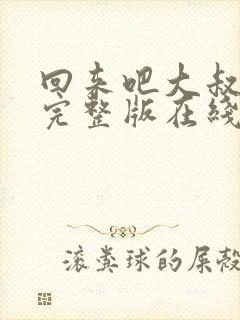 回来吧大叔
完整版在线
滚粪球的屎壳